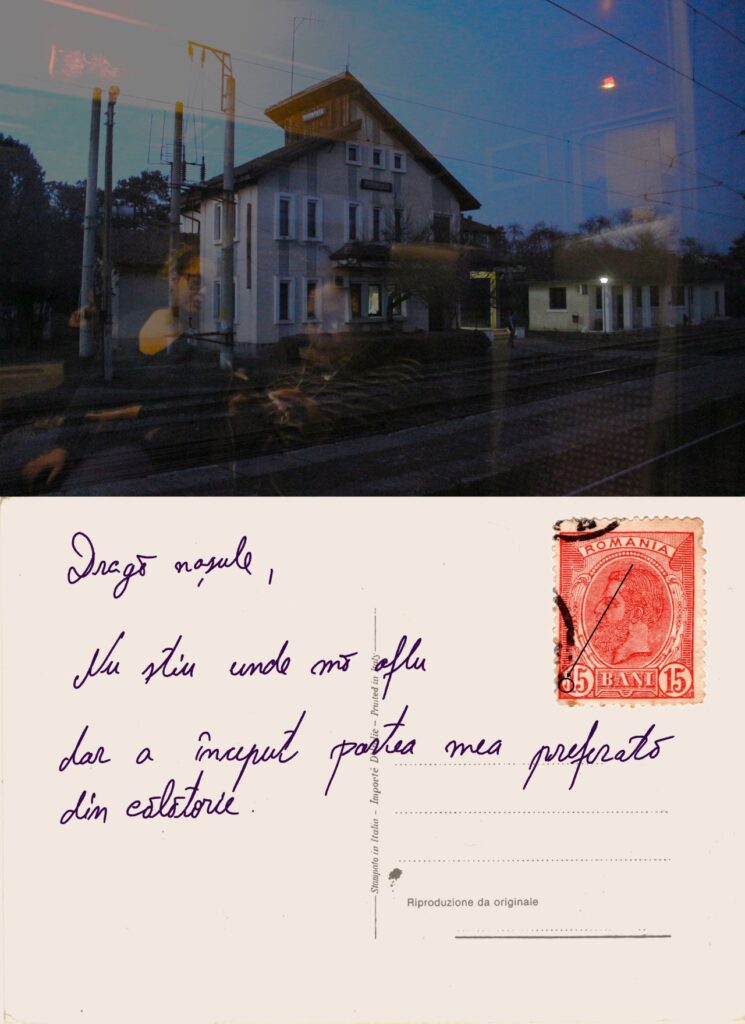 Dragă nașule,
ROMANIA
15 BANI 15
Nu știu unde mă aflu
dar a început partea mea preferată
din călătorie.
Stampato in Italia - Importé D'Italie - Printed in Italy
Riproduzione da originale